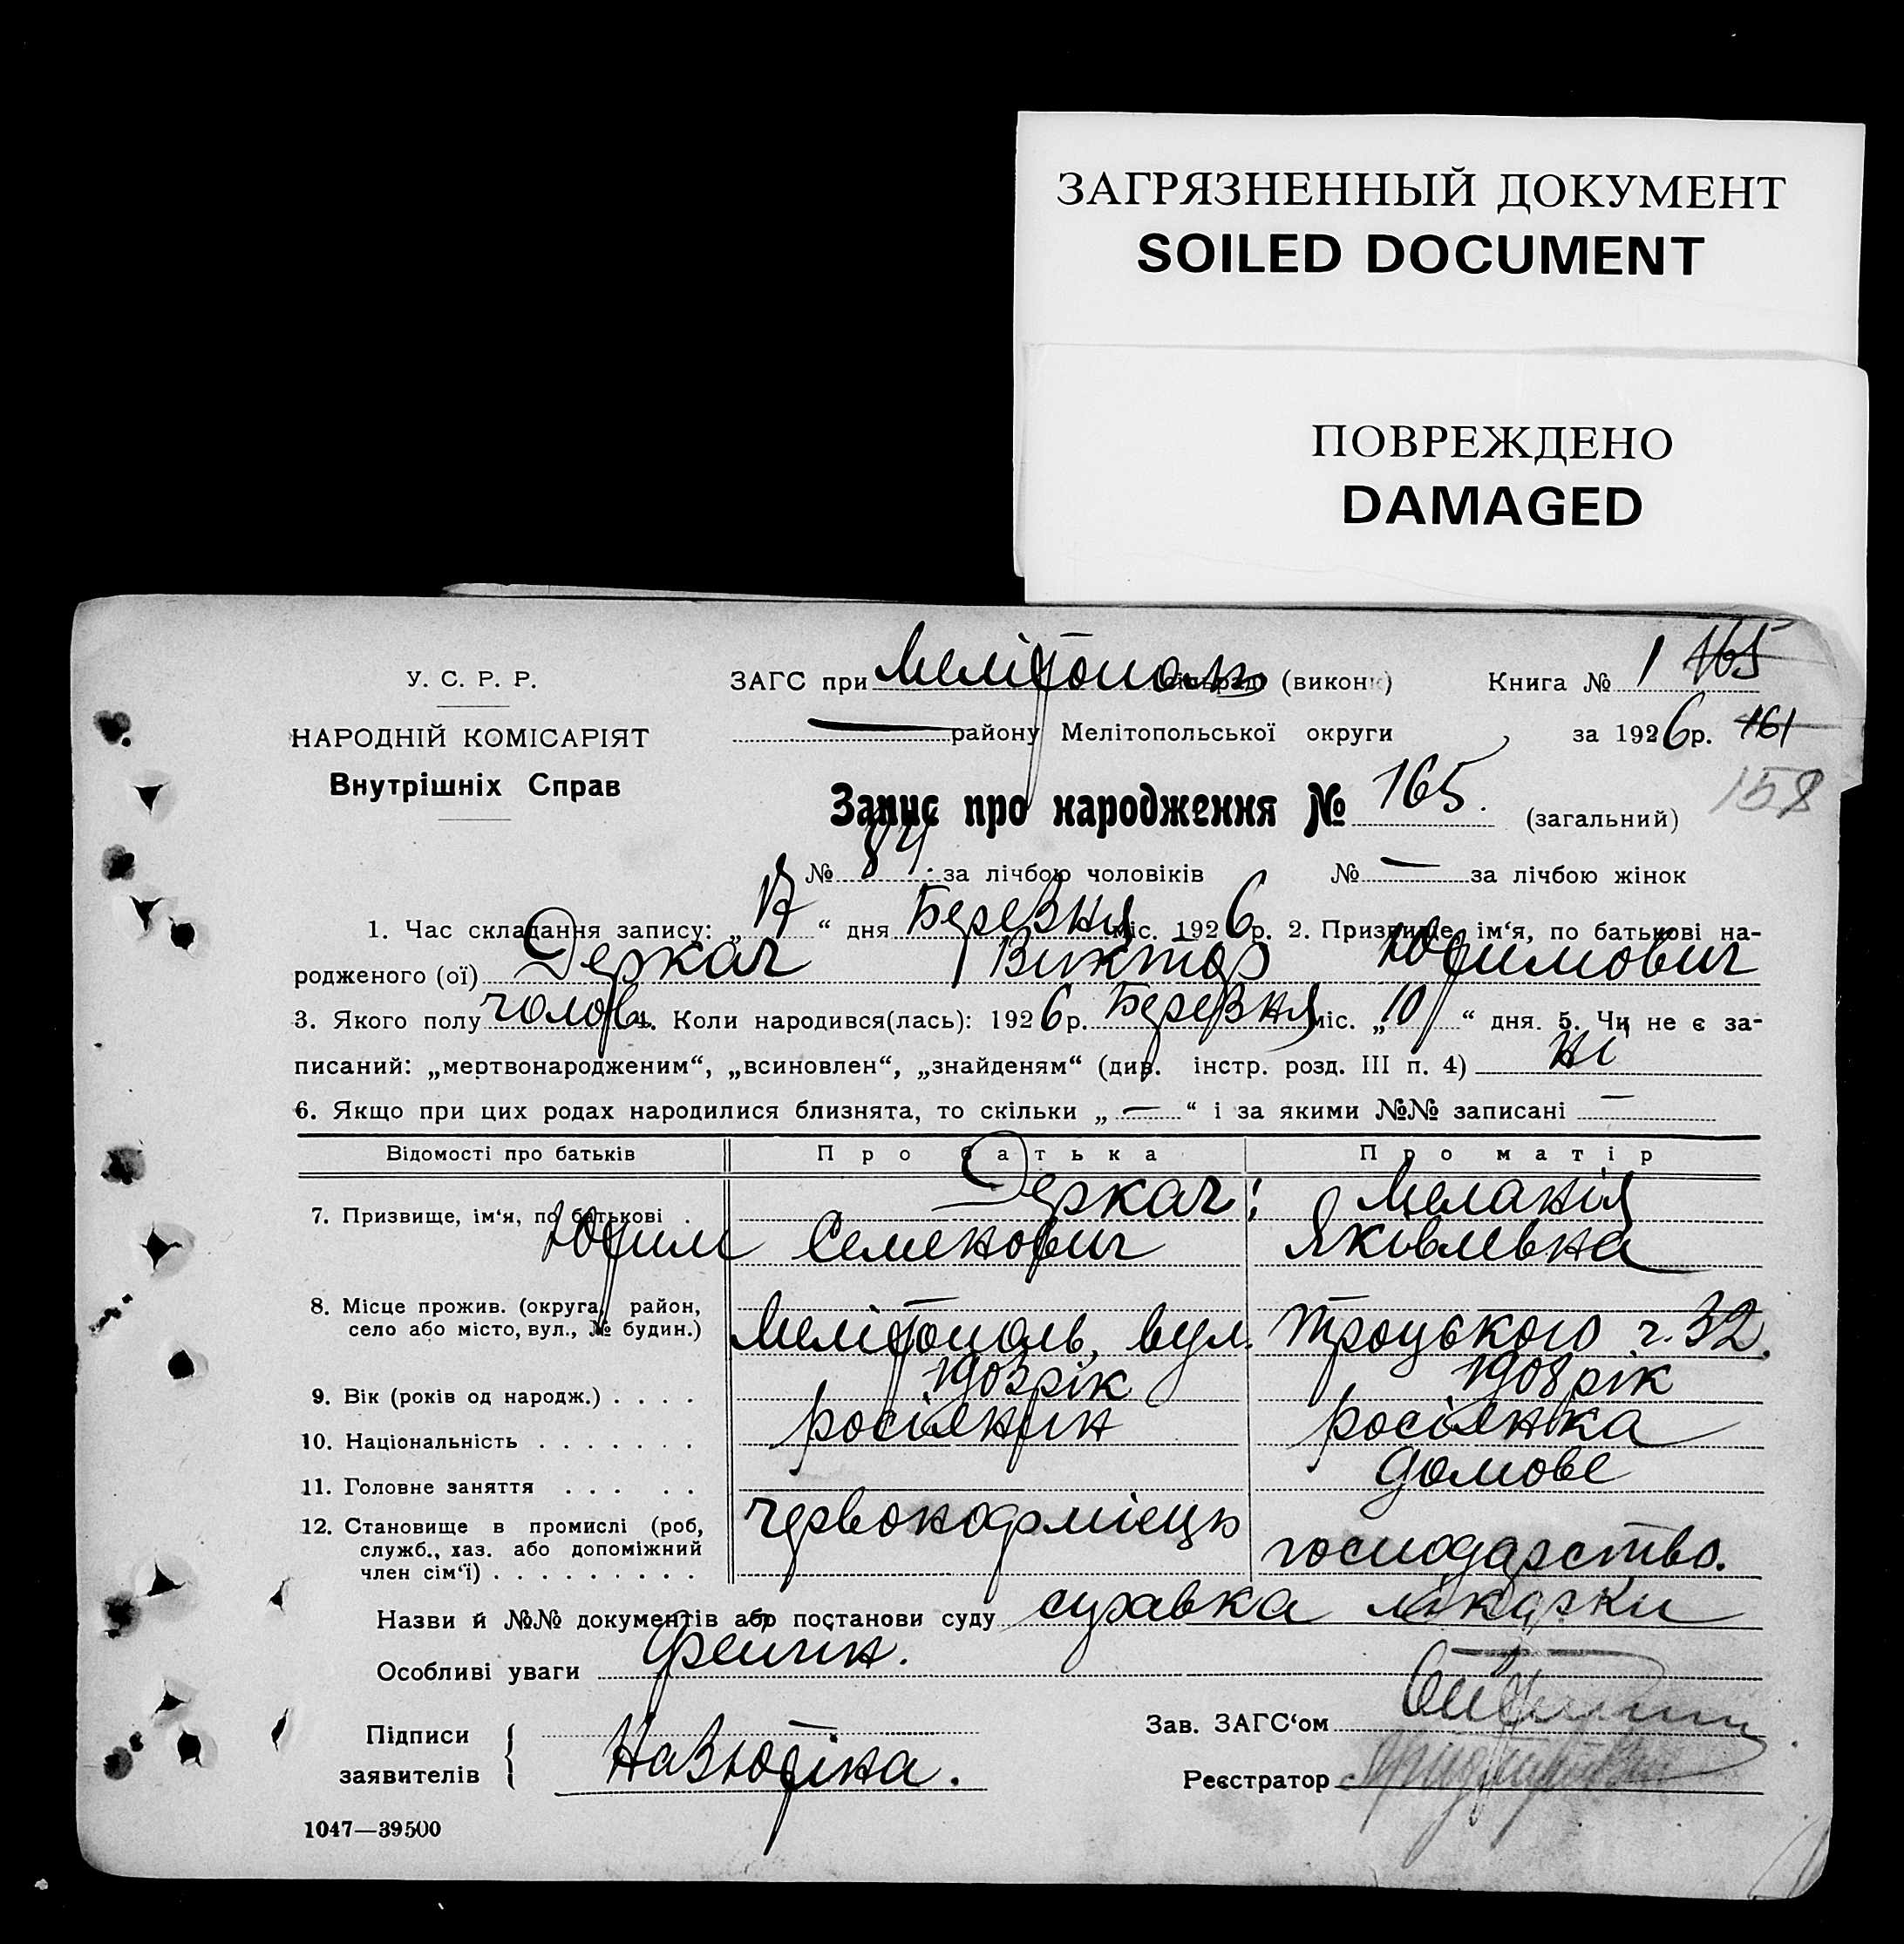 ЗАГРЯЗНЕННЫЙ ДОКУМЕНТ
SOILED DOCUMENT
ПОВРЕЖДЕНО
DAMAGED
У. С. Р. Р.
НАРОДНІЙ КОМІСАРІЯТ
Внутрішніх Справ
ЗАГС при Мелітополь сільраді (виконк) Книга № 1 165
— району Мелітопольської округи за 1926 р. 161
158
Запис про народження № 165. (загальний)
№ 84. за лічбою чоловіків № — за лічбою жінок
1. Час складання запису: „17“ дня Березня міс. 1926 р. 2. Призвище, ім‘я, по батькові на-
родженого (ої) Деркач Виктор Юхимович
3. Якого полу чолов. 4. Коли народився(лась): 1926 р. Березня міс. „10“ дня. 5. Чи не є за-
писаний: „мертвонародженим“, „всиновлен“, „знайденям“ (див. інстр. розд. III п. 4) ні
6. Якщо при цих родах народилися близнята, то скільки „—“ і за якими №№ записані —
Відомості про батьків Про батька Про матір
7. Призвище, ім‘я, по батькові . Деркач: Меланія
Юхим Семенович Яковлевна
8. Місце прожив. (округа, район,
село або місто, вул., № будин.) Мелітополь, вул. Троцького ч. 32.
9. Вік (років од народж.) . . . . 1903 рік 1908 рік
10. Національність . . . . . . . росіянин росіянка
11. Головне заняття . . . . . домове
12. Становище в промислі (роб, червоноармієць господарство.
служб., хаз. або допоміжний
член сім‘ї) . . . . . . . . .
Назви й №№ документів або постанови суду справка лікарки
Особливі уваги
Підписи
заявителів
Зав. ЗАГС‘ом
Реєстратор
1047—39500